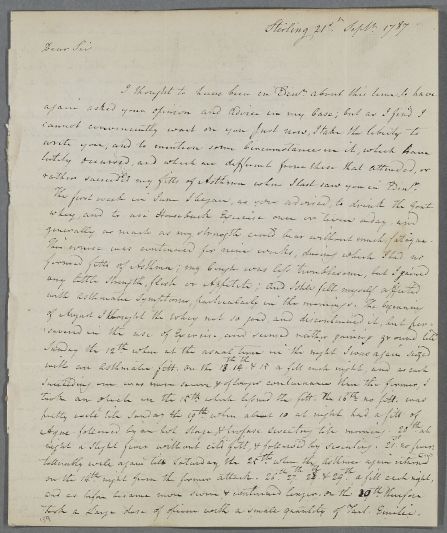 Stirling 21st Septr. 1787
Dear Sir
I thought to have been in Edinr. about this time, to have
again asked your opinion and advice in my Case; but as I find I
cannot conveniently wait on you just now, I take the liberty to
write you, and to mention some Circumstances in it, which have
lately occurred, and which are different from those that attended, or
rather succeeded my fitts of Asthma when I last saw you in Edinr.
The first week in June I began, as you advised, to drink the Goat
whey, and to use Horseback Exercise once or twice a day, and
generally as much as my strength could bear without much fatigue.
This course was continued for nine weeks, during which I had no
formed fitts of Asthma; my Cough was less troublesome, but I gained
any little Strength, flesh or Appetite; and I often felt myself affected
with Asthmatic Symptoms, particularly in the mornings. The beginning
of August I thought the whey not so good and discontinued it, but per-
severed in the use of Exercise and seemed rather gaining ground till
Sunday the 12th when at the usual time in the night I was again seized
with an asthmatic fitt. on the 13 14th & 15 a fitt each night, and as each
succeeding one was more severe & of longer continuance than the former I
took an opiate on the 15th which lessened the fitt. the 16th no fitt. was
pretty well till Sunday the 19th when about 10 at night had a fitt of
Ague followed by an hot Stage & profuse sweating till morning. 20th at
night a slight fever without cold fitt, & followed by sweating. 21st no fever,
tolerably well again till Saturday the 25th when the Asthma again returned
on the 14th night from the former attack. 26th 27th 28 & 29th a fitt each night,
and as before became more severe & continued longer. on the 29th therefore
took a large dose of opium with a small quantity of Tart. Emetic.